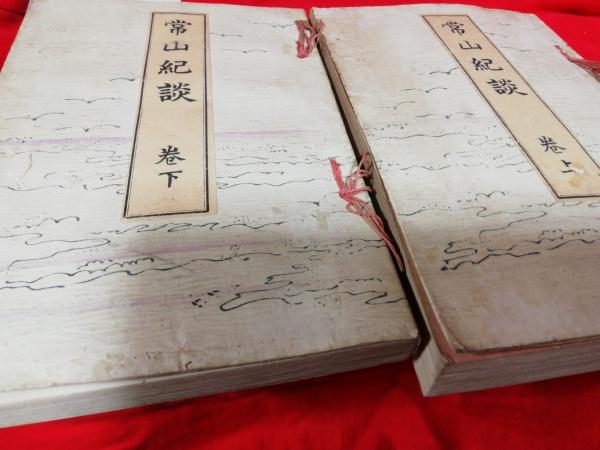 常山紀談 卷上
常山紀談 卷下